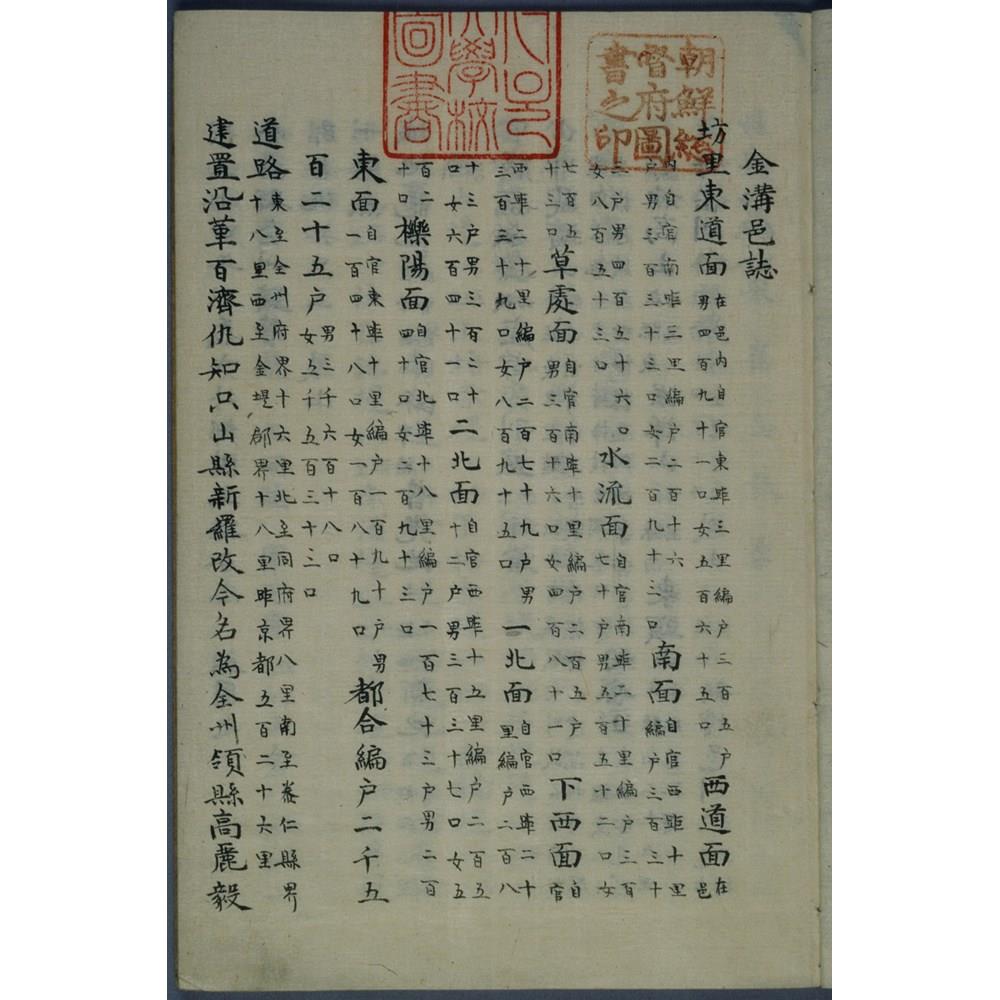 朝鮮總
督府圖
書之印
大學校
圖書
金溝邑誌
坊里東道面在邑內自官東距三里編戶三百五戶男四百九十一口女五百六十五口西道面在邑
內自官南距三里編戶二百十六戶男三百三十三口女二百九十三口南面自官西距十里編戶三百三十
二戶男四百五十六口女八百五十三口水流面自官南距二十里編戶三百七十戶男五百五十二口女
七百五十三口草處面自官南距十里編戶二百五戶男三百十六口女四百八十一口下西面自官
西距二十里編戶二百七十九戶男三百三十九口女八百九十五口一北面自官西距二十里編戶二百八
十三戶男三百二十口女六百四十一口二北面自官西距十五里編戶二百五十二戶男三百三十七口女五
百二十口櫟陽面自官北距十八里編戶一百七十三戶男二百四十口女二百九十三口
東面自官東距十里編戶一百九十戶男一百四十八口女一百八十九口都合編戶二千五
百二十五戶男三千六百十八口女五千五百三十三口
道路東至全州府界十六里北至同府界八里南至泰仁縣界十八里西至金堤郡界十八里距京都五百二十六里
建置沿革百濟仇知只山縣新羅改今名為全州領縣高麗毅